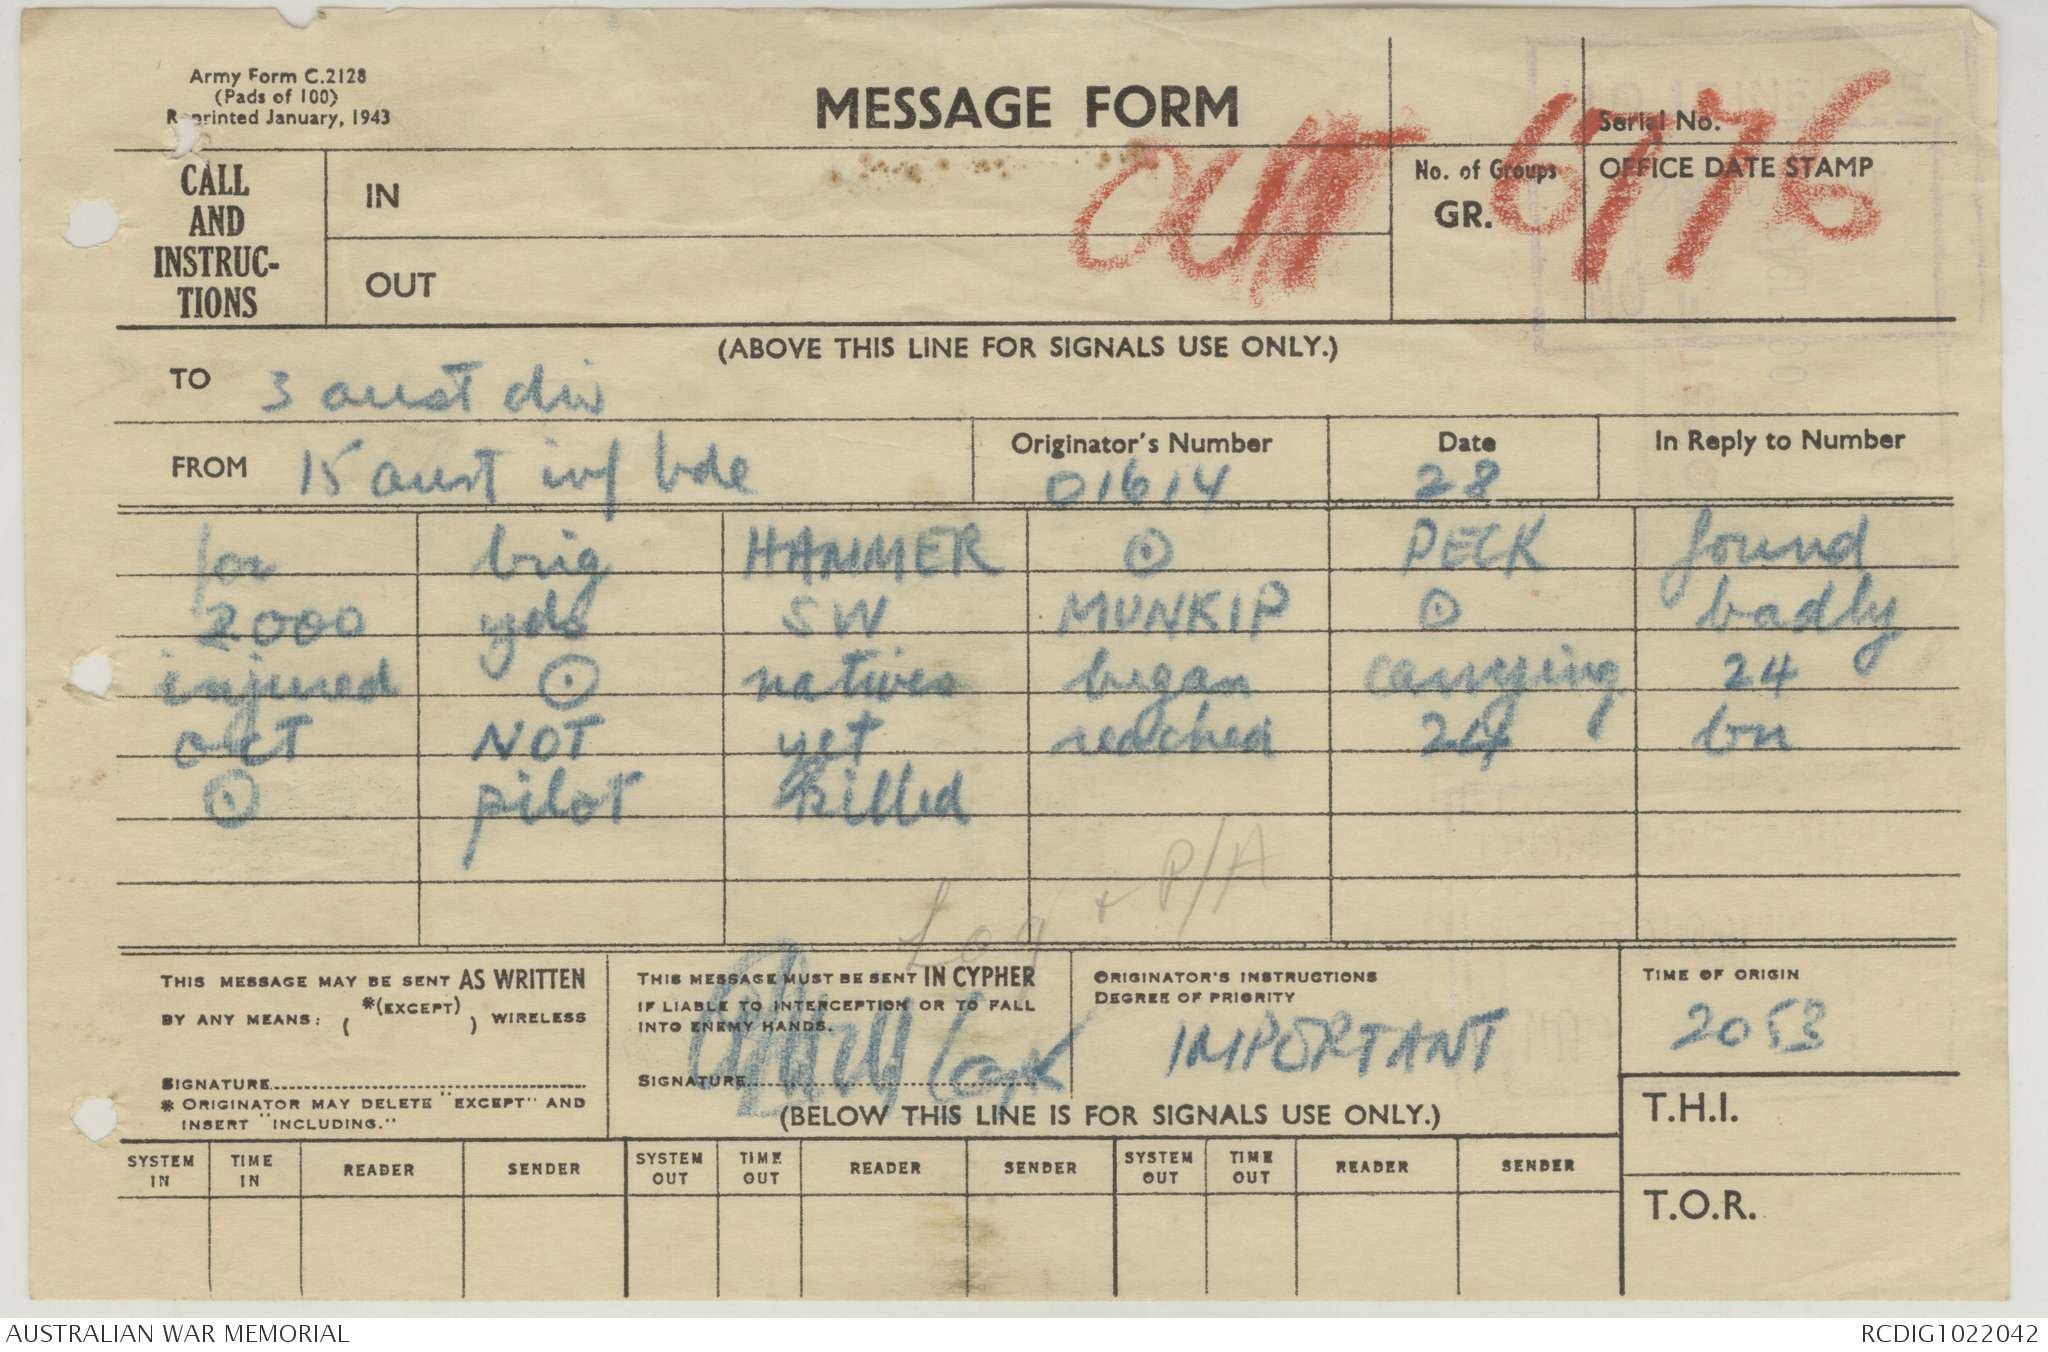 Army Form C.2128
(Pads of 100)
Reprinted January, 1943
MESSAGE FORM
OUT 6776
Serial No.
CALL AND INSTRUC-TIONS
IN
OUT
No. of Groups
GR.
OFFICE DATE STAMP
(ABOVE THIS LINE FOR SIGNALS USE ONLY.)
TO 3 aust div
FROM 15 aust inf bde
Originator's Number
01614
Date
28
In Reply to Number
for brig HAMMER ⊙ PECK found
2000 yds SW MUNKIP ⊙ badly
injured ⊙ natives began carrying 24
oct NOT yet reached 24 bn
⊙ pilot killed
Log + P/A
THIS MESSAGE MAY BE SENT AS WRITTEN
BY ANY MEANS: ( *(EXCEPT) ) WIRELESS
SIGNATURE
* ORIGINATOR MAY DELETE "EXCEPT" AND
INSERT "INCLUDING."
THIS MESSAGE MUST BE SENT IN CYPHER
IF LIABLE TO INTERCEPTION OR TO FALL
INTO ENEMY HANDS.
SIGNATURE
ORIGINATOR'S INSTRUCTIONS
DEGREE OF PRIORITY
IMPORTANT
TIME OF ORIGIN
2053
(BELOW THIS LINE IS FOR SIGNALS USE ONLY.)
T.H.I.
T.O.R.
SYSTEM IN TIME IN READER SENDER SYSTEM OUT TIME OUT READER SENDER SYSTEM OUT TIME OUT READER SENDER
AUSTRALIAN WAR MEMORIAL
RCDIG1022042